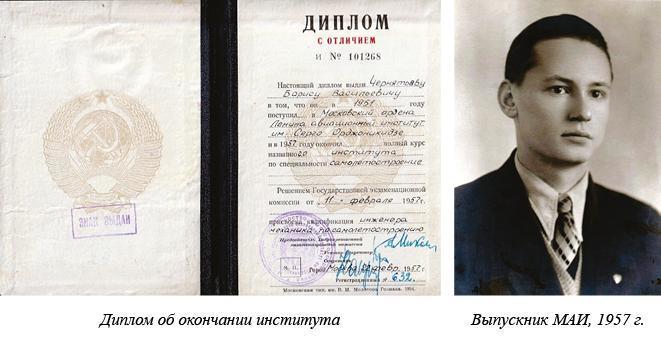 ЗНАК ВЫДАН
ДИПЛОМ
С ОТЛИЧИЕМ
И № 101268
Настоящий диплом выдан Чернятьеву
Борису Васильевичу
в том, что он в 1951 году
поступил в Московский ордена
Ленина авиационный институт
им. Серго Орджоникидзе
и в 1957 году окончил полный курс
названного института
по специальности самолетостроение
Решением Государственной экзаменационной
комиссии от "11" февраля 1957 г.
присвоена квалификация инженера
механика по самолетостроению
Председатель Государственной
экзаменационной комиссии
М. П.
Город Москва февр. 1957 г.
Регистрационный № 632
Диплом об окончании института
Выпускник МАИ, 1957 г.